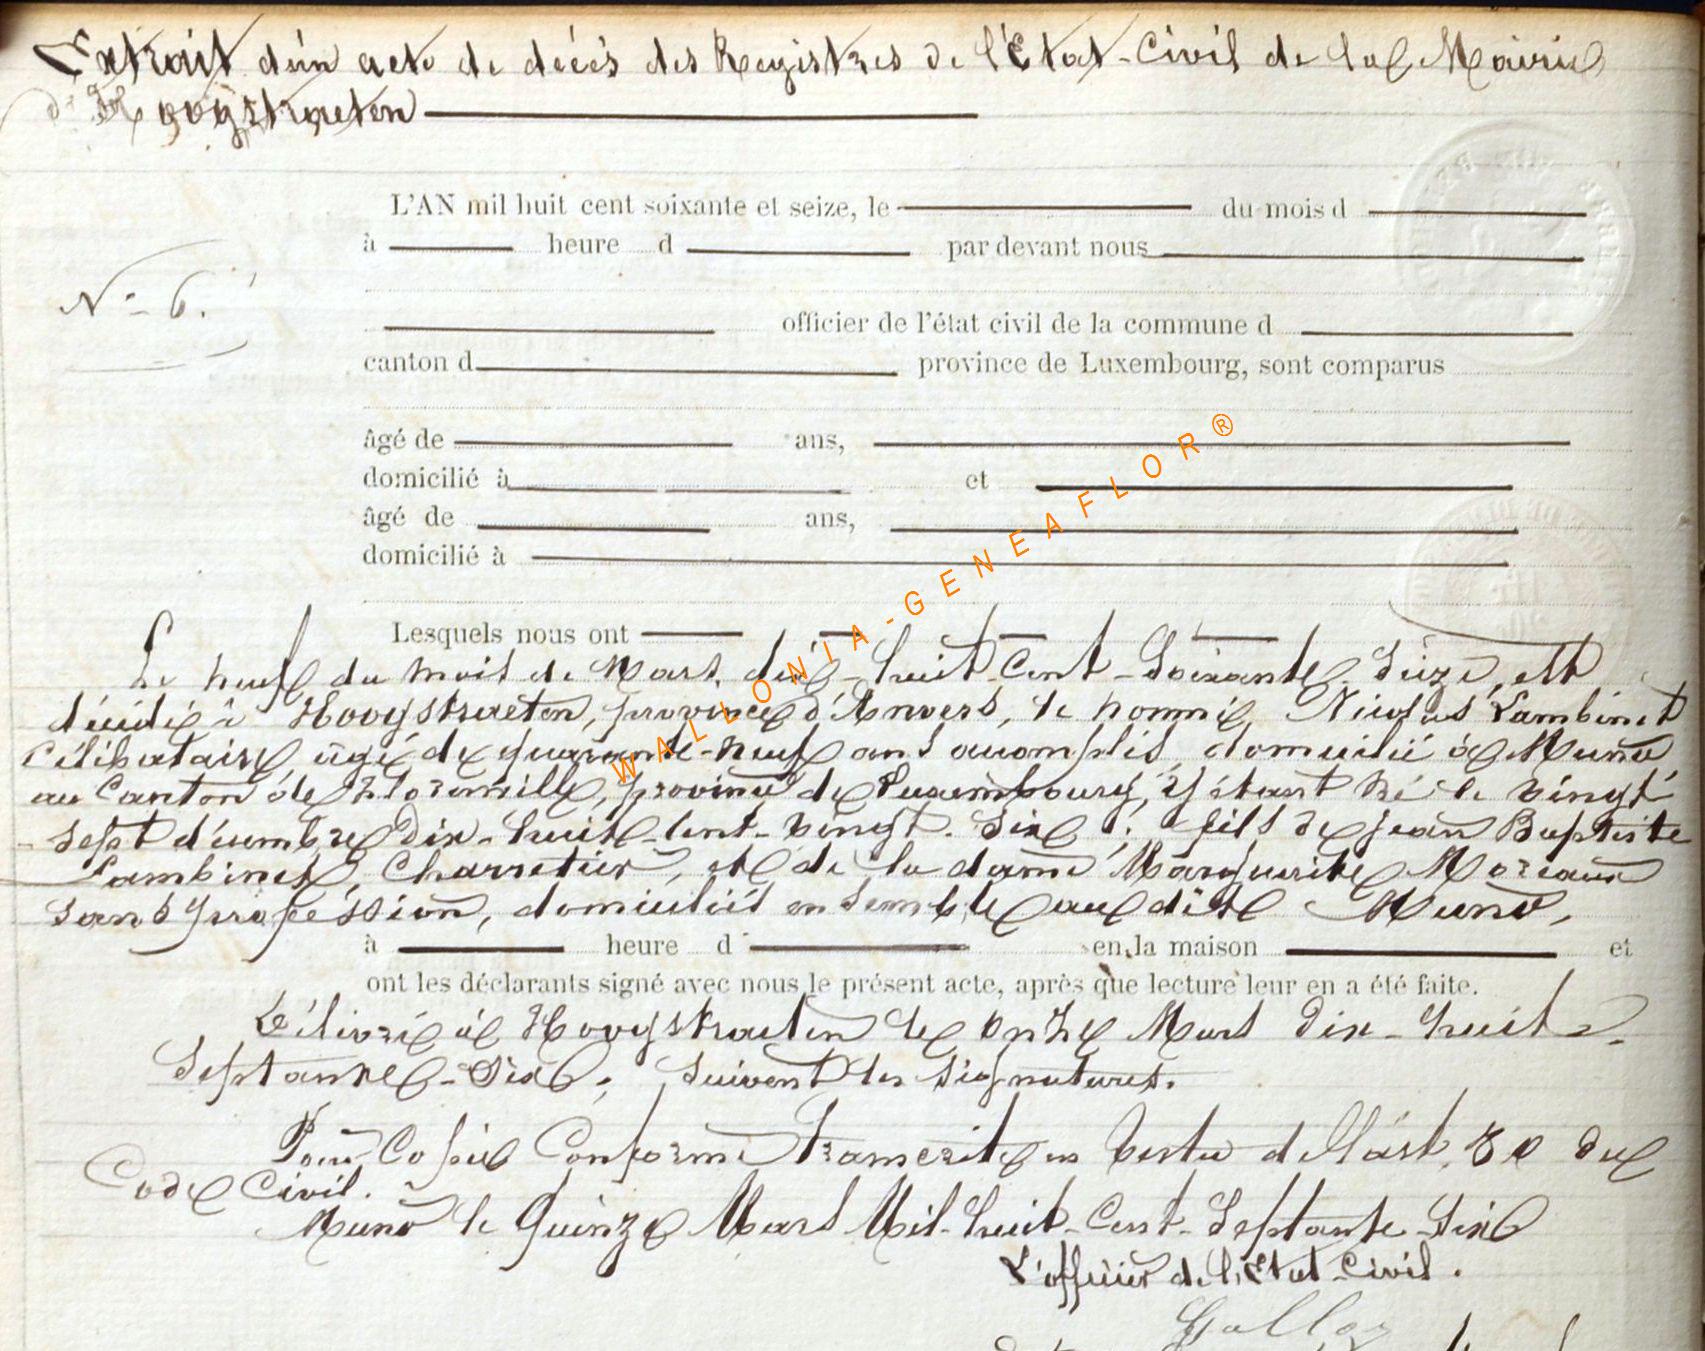 Extrait d'un acte de décès des Registres de l'Etat-Civil de la Mairie
de Hoogstraeten
L'AN mil huit cent soixante et seize, le du mois d
à heure d par devant nous
N° 6.
officier de l'état civil de la commune d
canton d province de Luxembourg, sont comparus
âgé de ans,
domicilié à et
âgé de ans,
domicilié à
Lesquels nous ont
Le neuf du mois de Mars, dix-huit-Cent-Soixante Seize, est
décédé à Hoogstraeten, province d'Anvers, le nommé, Nicolas Lambinet
Célibataire, âgé de quarante-neuf ans accomplis domicilié à Muno
au Canton de Florenville, province de Luxembourg, y étant né le vingt
sept décembre Dix-huit-Cent-vingt-Six; fils de Jean Baptiste
Lambinet, Charretier, et de la dame Marguerite Moreaux
sans profession, domiciliés ensemble au dit Muno,
à heure d en la maison et
ont les déclarants signé avec nous le présent acte, après que lecture leur en a été faite.
Délivré à Hoogstraeten le onze Mars Dix-huit
Septante-Six; suivent les signatures.
Pour Copie Conforme transcrite en vertu de l'art. 80 du
Code Civil.
Muno le Quinze Mars Mil-huit-Cent-Septante-Six
L'officier de l'Etat-Civil.
WALLONIA-GENEAFLOR®